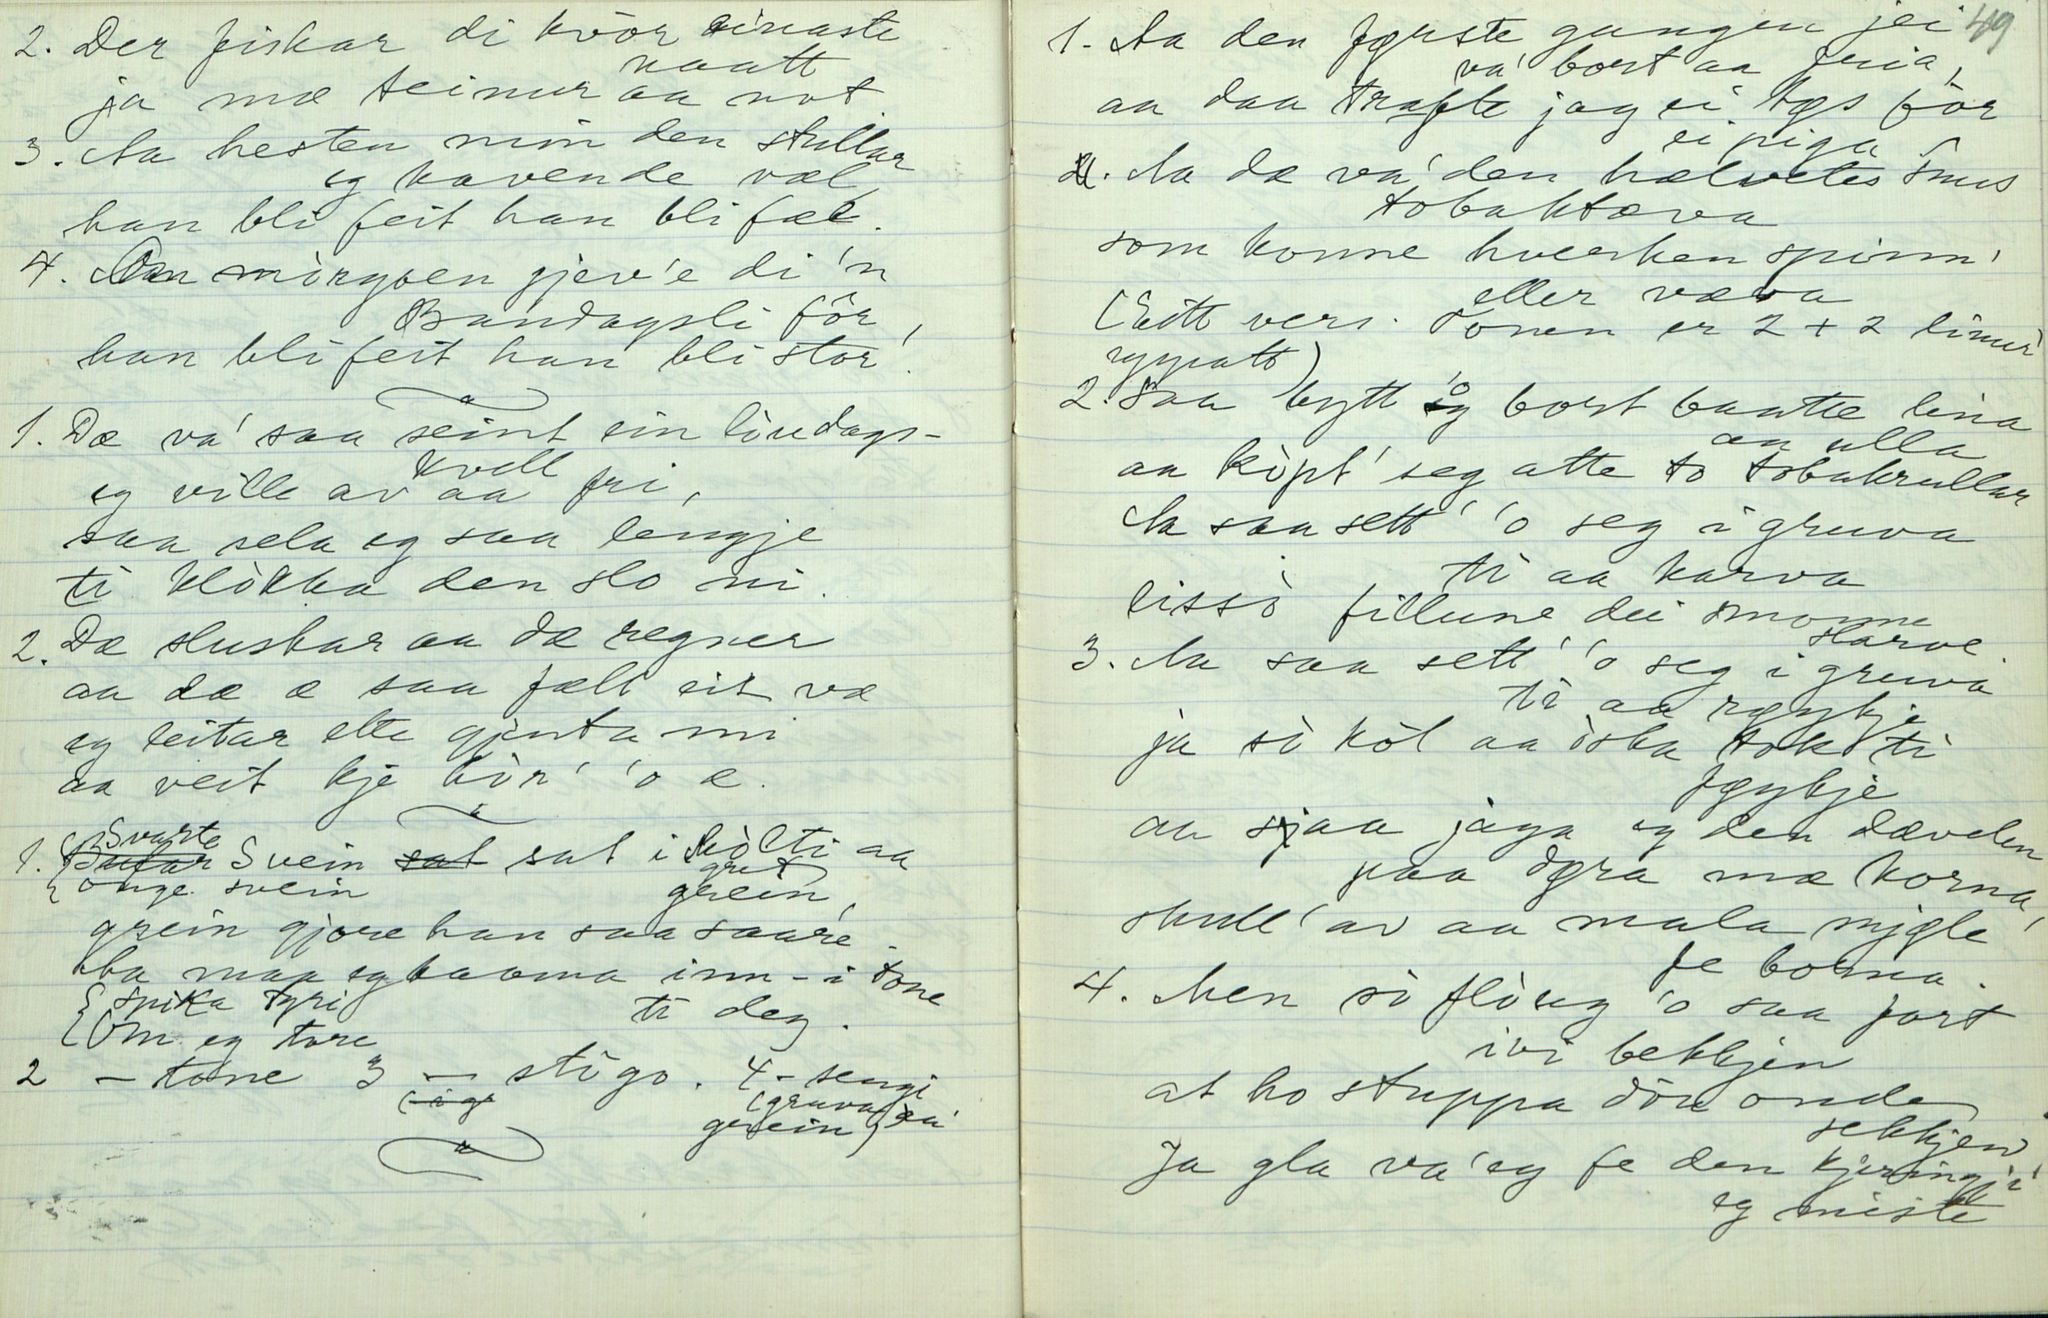 2. Der fiskar di kvör einaste
naatt
ja mæ teinur aa not
3. Aa hesten min den stullar
eg kavende væl,
han bli feit han bli fæl.
4. Om mòrgoen gjev'e di 'n
Bandagsli fôr,
han bli feit han bli stor'.
1. Dæ va' saa seint ein löudags-
kvell
eg ville av aa fri,
saa sela eg saa lengje
ti klòkka den slo ni.
2. Dæ sluskar aa dæ regner
aa dæ æ saa fælt eit væ
eg leitar ette gjenta mi
aa veit kje hòr' 'o æ.
Svarte
1. Svein sat i hòlti aa
onge svein
gret
grein,
grein gjore han saa saare.
Ka maa eg kaama inn-i tone
Spika tyri
ti deg.
Om eg tore
2 – tone 3 – stigo. 4 – sengi
(gruva)
grein
49
1. Aa den førstè gangen jei
va' bort aa fria,
aa daa trafte jag ei tøs för
ei piga
2. Aa dæ va' den hælvetes Snus
tobaktæva
som konne hverken spinn'
eller væva
(Eitt vers. Tonen er 2 + 2 linur
uppatt)
2. Saa bytt 'o bort baatte lina
aa ulla
aa kòpt' seg atte to tobakrullar
Aa saa sett' 'o seg i gruva
ti aa karva
lissò fillune dei monne
slarve.
3. Aa saa sett' 'o seg i gruva
ti aa røykje
ja sò kòl aa òska tok ti
føykje
aa sjaa jaga eg den dævelen
paa døra mæ korna,
skull' av aa mala mjøle
fe borna.
4. Men sò flòug 'o saa fort
ivi bekkjen
at ho stuppa döu onde
sekkjen
Ja gla va' eg fe den kjeringji
eg miste